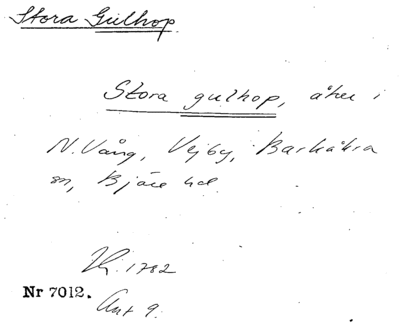 Stora Gulhop.
Stora gulhop, åker i
N. Vång, Vejby, Barkåkra
sn, Bjäre hd.
1782
Nr 7012.
Akt 9.